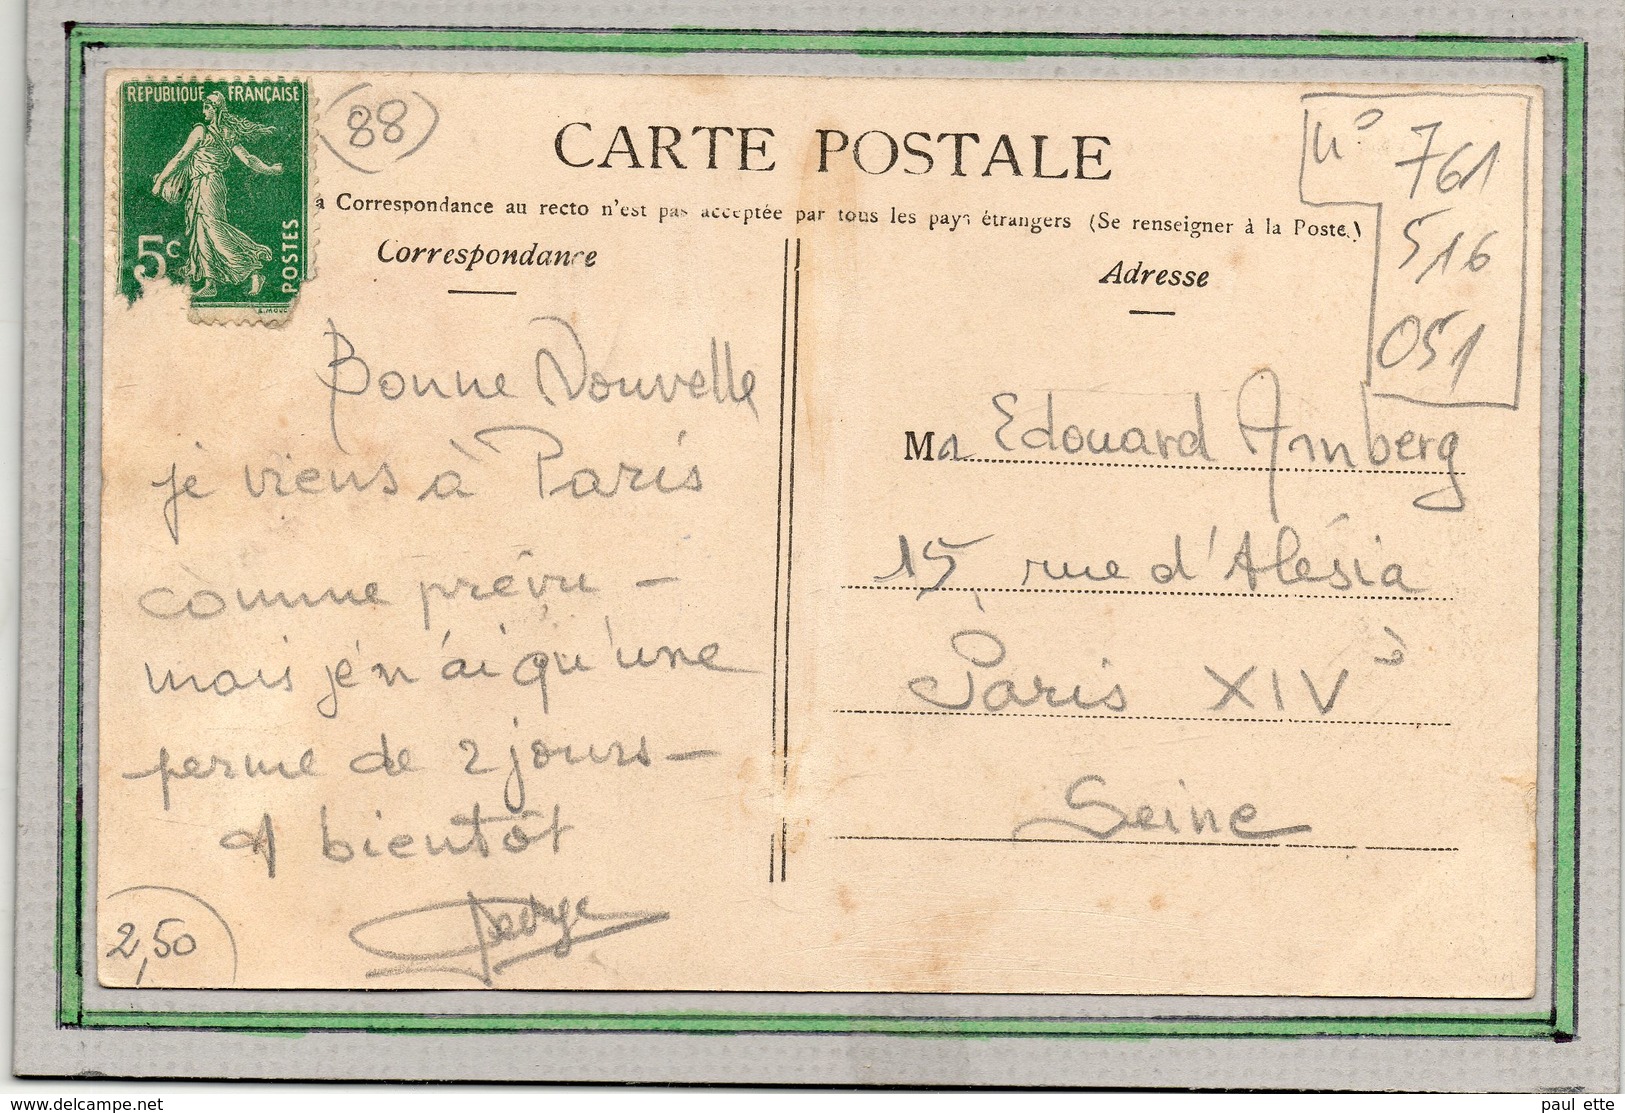 REPUBLIQUE FRANÇAISE
5c POSTES
(88)
CARTE POSTALE
a Correspondance au recto n'est pas acceptée par tous les pays étrangers (Se renseigner à la Poste.)
Correspondance
Adresse
N° 761
516
051
Bonne Nouvelle
je viens à Paris
comme prévu –
mais je n'ai qu'une
perme de 2 jours –
A bientôt
George
2,50
Mr Edouard Amberg
15, rue d'Alésia
Paris XIVè
Seine
www.delcampe.net
paul ette